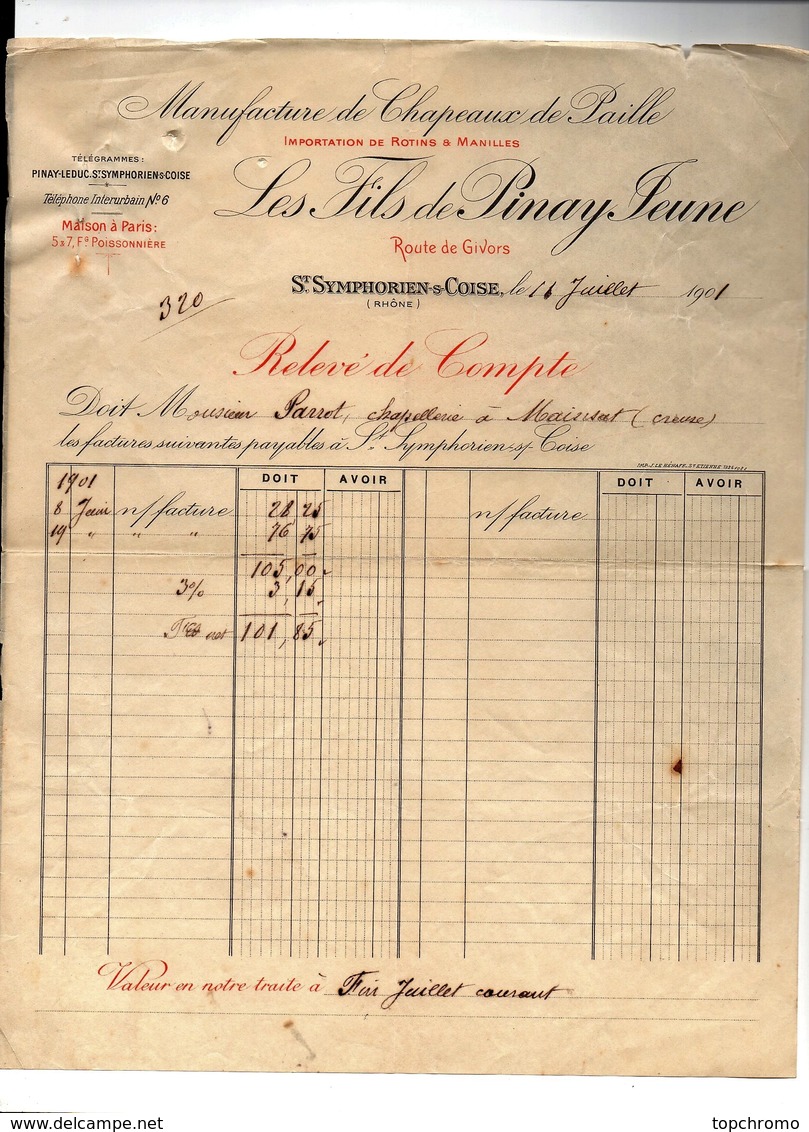 Manufacture de Chapeaux de Paille
IMPORTATION DE ROTINS & MANILLES
TÉLÉGRAMMES:
PINAY-LEDUC.ST SYMPHORIEN-S-COISE
Téléphone Interurbain No 6
Maison à Paris:
5 & 7, Fg POISSONNIÈRE
Les Fils de Pinay Jeune
Route de Givors
ST SYMPHORIEN-S-COISE, le 11 Juillet 1901
(RHÔNE)
320
Relevé de Compte
Doit Monsieur Parrot, chapellerie à Mainsat (Creuse)
les factures suivantes payables à St Symphorien-s/-Coise
IMP. J. LE HÉNAFF. ST ETIENNE
DOIT AVOIR DOIT AVOIR
1901
8 Juin n/ facture 28 25 n/ facture
19 " " " 76 75
105,00
3% 3,15
net 101,85
Valeur en notre traite à Fin Juillet courant
topchromo